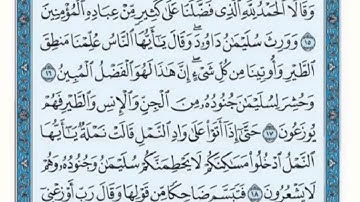 وَقَالَا ٱلْحَمْدُ لِلَّهِ ٱلَّذِى فَضَّلَنَا عَلَىٰ كَثِيرٍ مِّنْ عِبَادِهِ ٱلْمُؤْمِنِينَ
١٥ وَوَرِثَ سُلَيْمَٰنُ دَاوُۥدَ ۖ وَقَالَ يَٰٓأَيُّهَا ٱلنَّاسُ عُلِّمْنَا مَنطِقَ
ٱلطَّيْرِ وَأُوتِينَا مِن كُلِّ شَىْءٍ ۖ إِنَّ هَٰذَا لَهُوَ ٱلْفَضْلُ ٱلْمُبِينُ ١٦
وَحُشِرَ لِسُلَيْمَٰنَ جُنُودُهُۥ مِنَ ٱلْجِنِّ وَٱلْإِنسِ وَٱلطَّيْرِ فَهُمْ
يُوزَعُونَ ١٧ حَتَّىٰٓ إِذَآ أَتَوْا۟ عَلَىٰ وَادِ ٱلنَّمْلِ قَالَتْ نَمْلَةٌ يَٰٓأَيُّهَا
ٱلنَّمْلُ ٱدْخُلُوا۟ مَسَٰكِنَكُمْ لَا يَحْطِمَنَّكُمْ سُلَيْمَٰنُ وَجُنُودُهُۥ وَهُمْ
لَا يَشْعُرُونَ ١٨ فَتَبَسَّمَ ضَاحِكًا مِّن قَوْلِهَا وَقَالَ رَبِّ أَوْزِعْنِىٓ